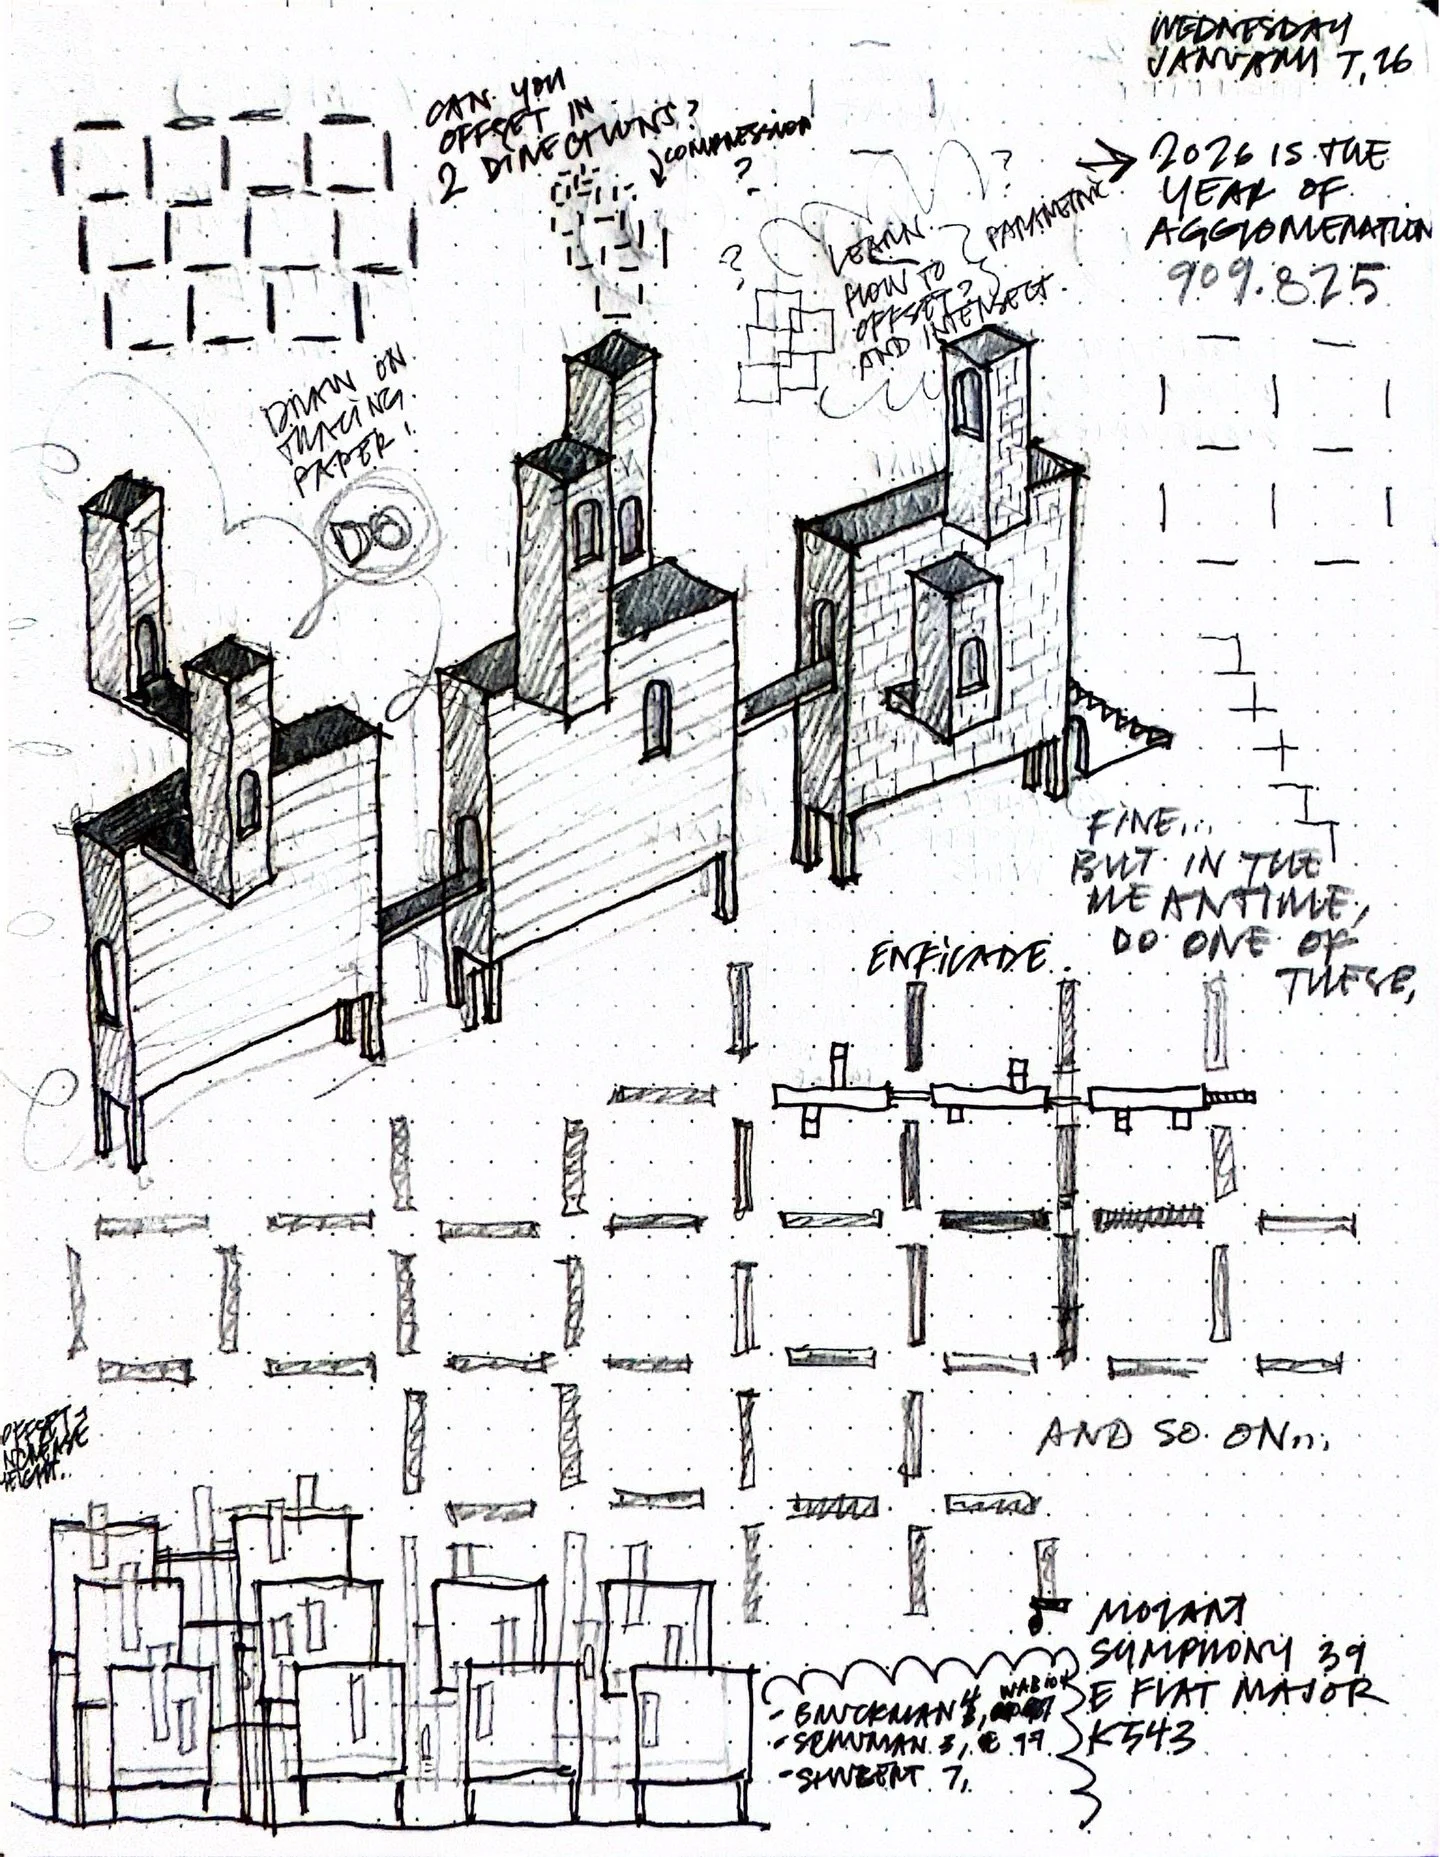 WEDNESDAY
JANUARY 7, 26
CAN YOU
OFFSET IN
2 DIRECTIONS?
COMPRESSION
?
→ 2026 IS THE
YEAR OF
AGGLOMERATION
909.825
?
?
LEARN
HOW TO
OFFSET?
AND INTERSECT
PARAMETRIC
DRAW ON
TRACING
PAPER!
DO
FINE...
BUT IN THE
MEANTIME,
DO ONE OF
THESE,
ENFILADE
AND SO ON...
OFFSET &
INCREASE
HEIGHT...
MOZART
SYMPHONY 39
E FLAT MAJOR
K543
- BRUCKMAN 4, WAB 104
- SCHUMAN 3, 97
- SHUBERT 7,